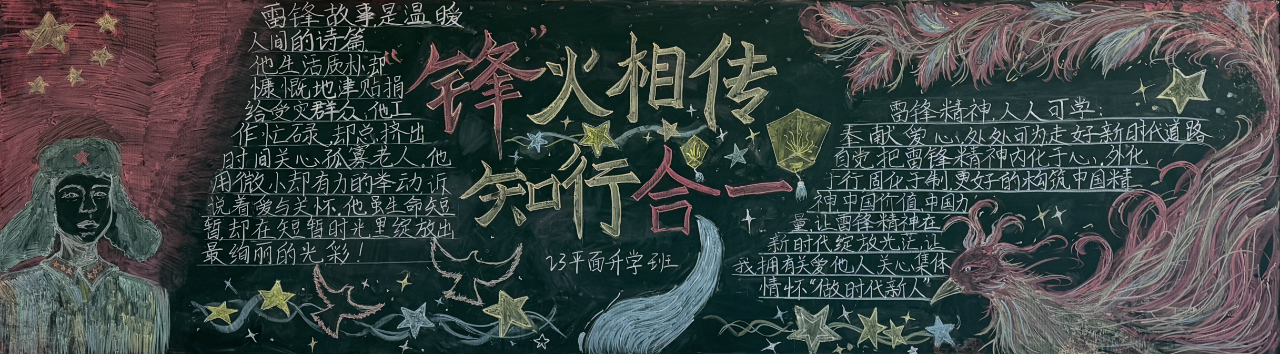 雷锋故事是温暖
人间的诗篇
他生活质朴却
慷慨地津贴捐
给受灾群众、他工
作忙碌,却总挤出
时间关心孤寡老人,他
用微小却有力的举动诉
说着爱与关怀,他虽生命短
暂却在短暂时光里绽放出
最绚丽的光彩!
“锋”火相传
知行合一
23平面升学班
雷锋精神,人人可学:
奉献爱心,处处可为走好新时代道路
自觉把雷锋精神内化于心,外化
于行,固化于制,更好的构筑中国精
神中国价值,中国力
量,让雷锋精神在
新时代绽放光芒,让
我拥有关爱他人关心集体
情怀“做时代新人”